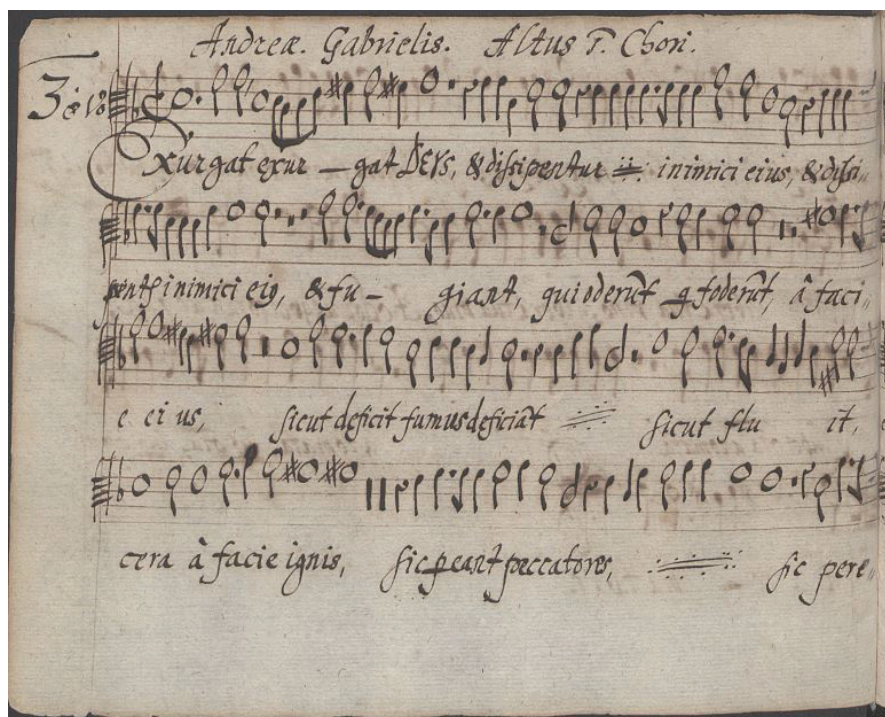 Andreæ. Gabrielis. Altus Chori.
Exurgat exur — gat DEVS, & dissipentur inimici eius, & dissi„
pentr inimici eiꝯ, & fu — giant, qui oderūt q̄ foderūt, à faci„
e ei us, sicut deficit fumus deficiāt sicut flu it,
cera à facie ignis, sic peant peccatores, sic pere„